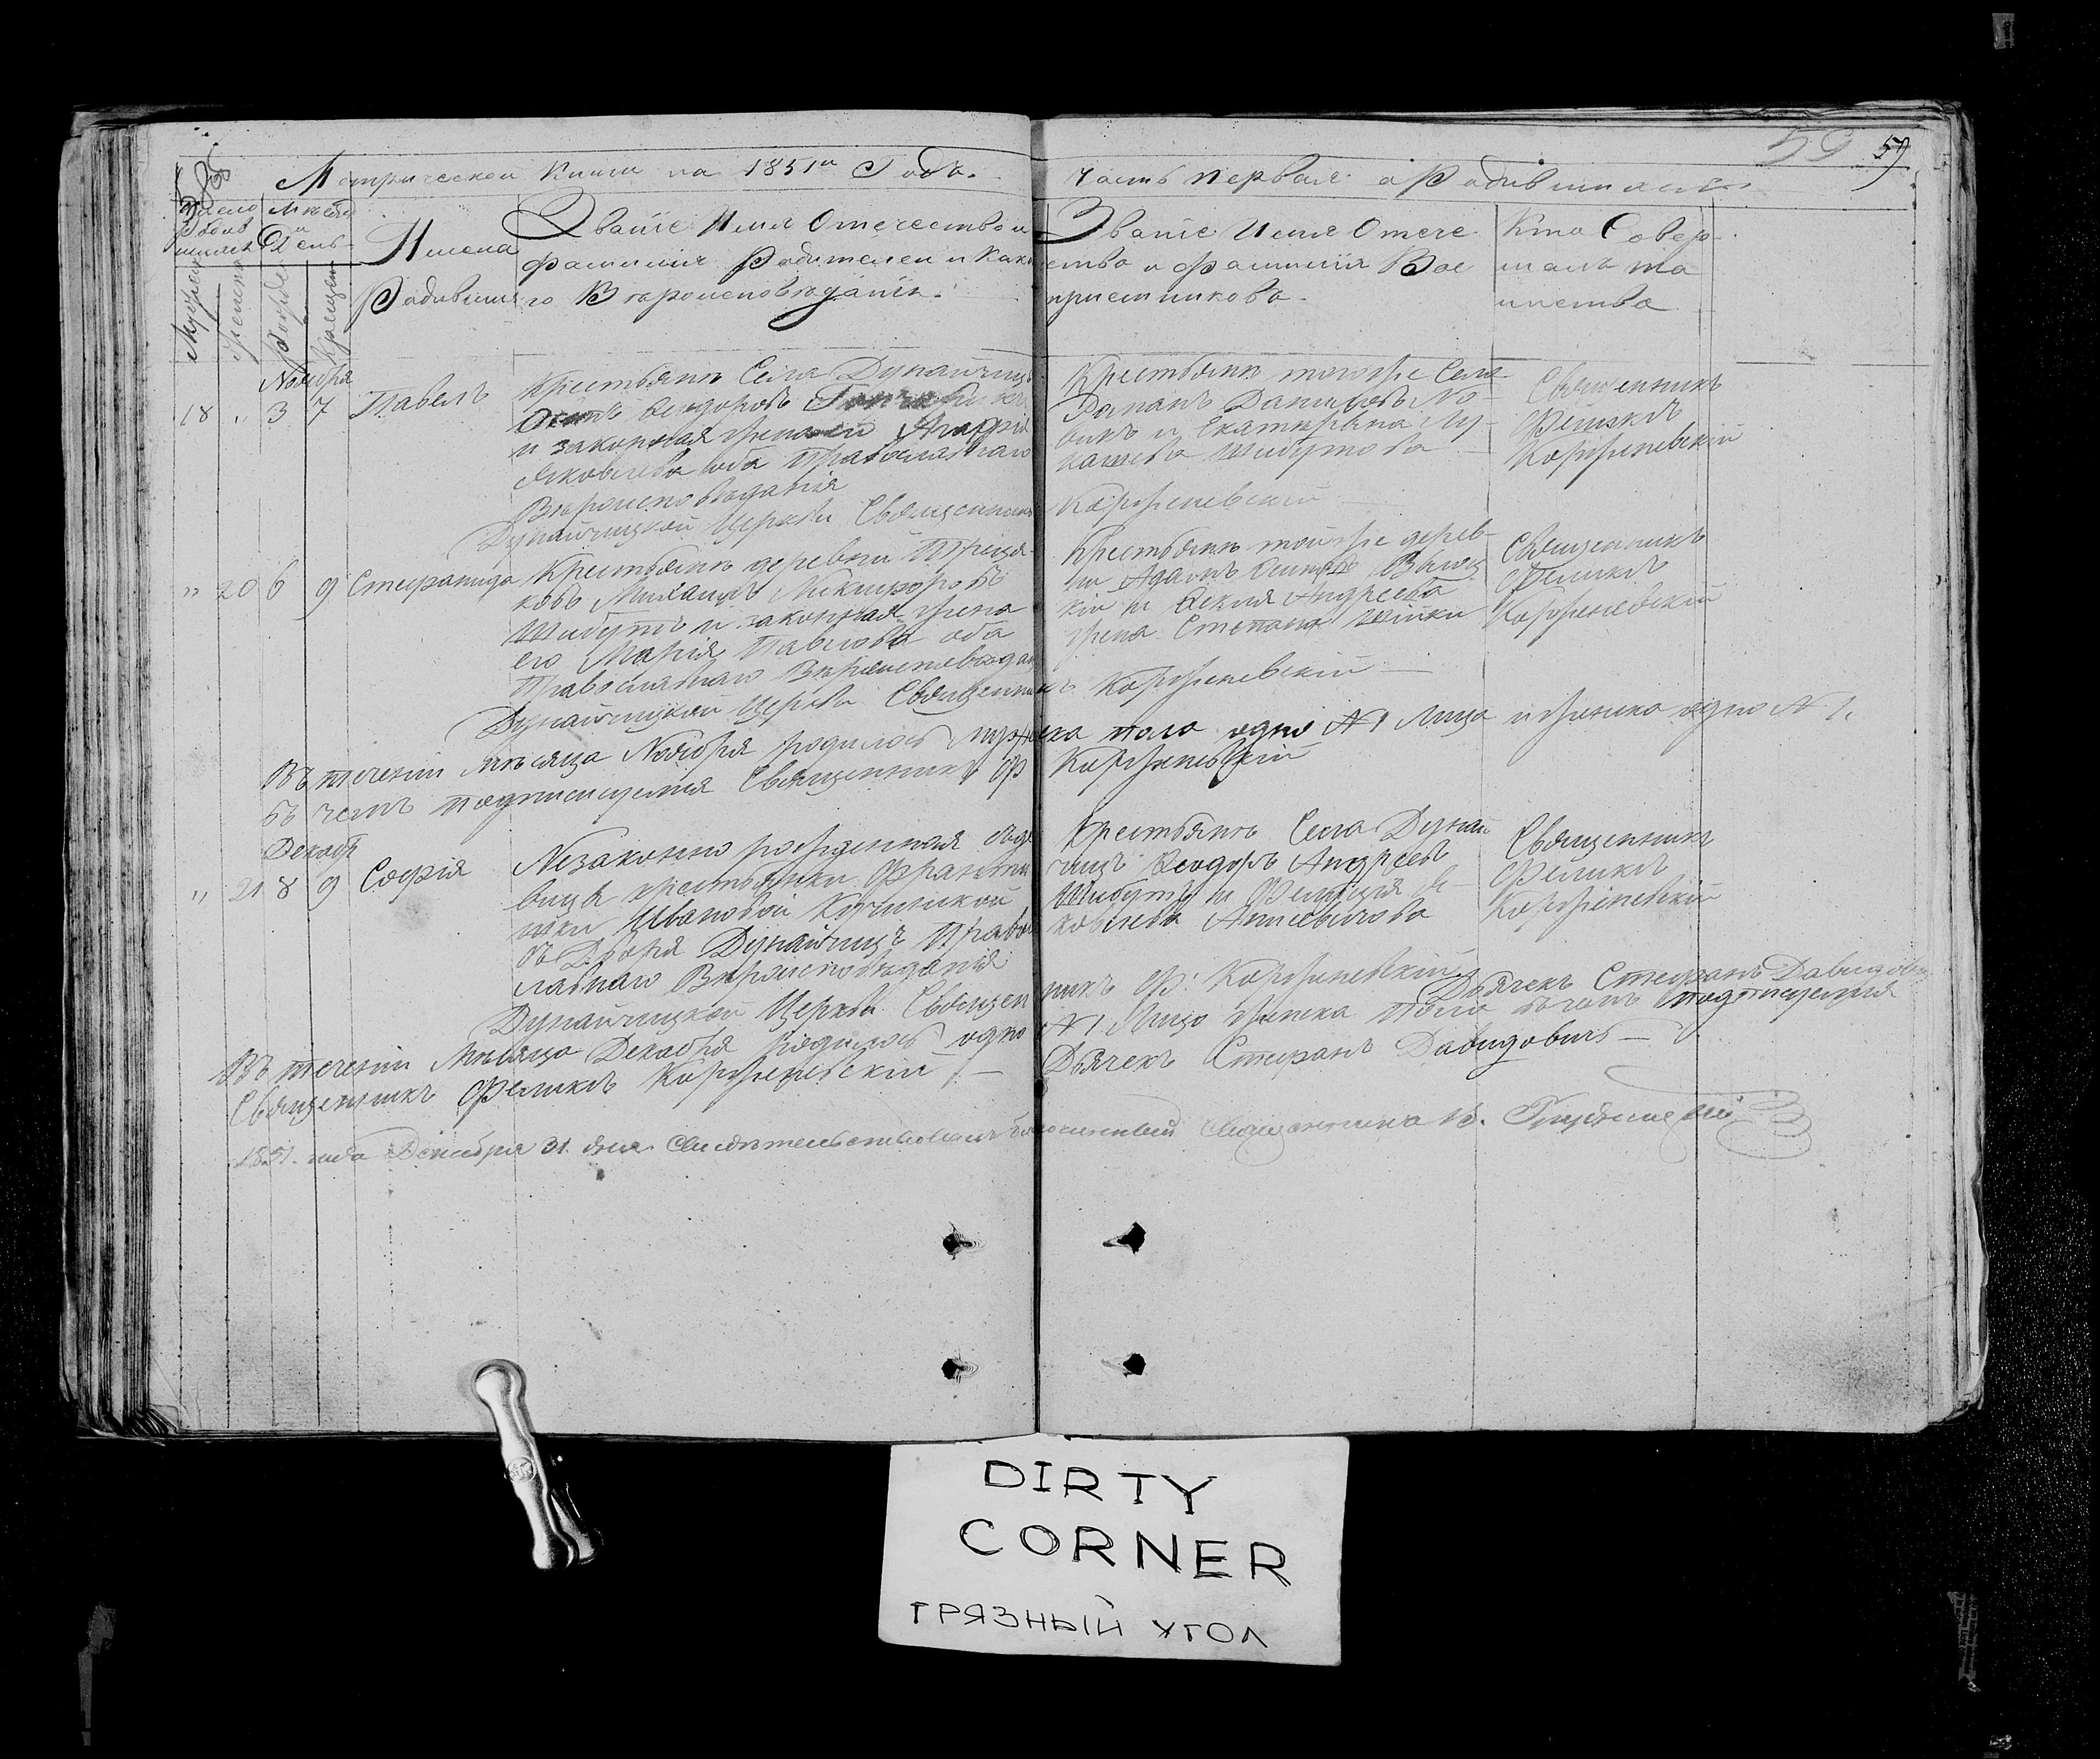 59 59
58
Метрической Книги на 1851й Годъ. Часть первая о Родившихся
Число Родив шихся
Мѣсяцъ и День
Имена Родившихся
Званіе Имя Отечество и
фамилія Родителей и како
го Вѣроисповѣданія.
Званіе Имя Отече
ство и фамилія Вос
приемниковъ.
Кто Совер
шалъ та
инство
Мужеска
Женска
Рожде
Крещен
Ноября
18 " 3 7 Павелъ
Крестьянъ Села Дунайчицъ
Ѳеодоровъ
и законная жена его Агафія
Яковлева оба Православнаго
Вѣроисповѣданія
Крестьянъ тогоже Села
Романъ Даниловъ Но-
викъ и Екатерина Лу-
кашева Шибутова
Священникъ
Феликсъ
Корженевскій
Дунайчицкой Церкви Священникъ Корженевскій
" 20 6 9 Стефанида
Крестьянъ деревни
ковъ Михаилъ Никифоровъ
Шибутъ и законная жена
его Марія Павлова оба
Православнаго Вѣроисповѣдан
Крестьянъ тойже дерев-
ни Адамъ Высоц
кій и Андреева
жена Степана
Священникъ
Феликсъ
Корженевскій
Дунайчицкой Церкви Священникъ Корженевскій
Въ теченіи Мѣсяца Ноября родилось мужеска пола одно №1 Лицо и женска одно №1.
въ чемъ подписуемся Священникъ Ф Корженевскій
Декабр
" 21 8 9 Софія
Незаконно рожденная отъ дѣ
вицы крестьянки
шки Ивановой
въ Двора Дунайчицъ Правос
лавнаго Вѣроисповѣданія
Крестьянъ Села Дунай
чицъ Ѳеодоръ Андреевъ
Шибутъ и Фелиція Я-
ковлева
Священникъ
Феликсъ
Корженевскій
Дунайчицкой Церкви Священ никъ Ф: Корженевскій Дьячекъ Стефанъ Давидович
Въ теченіи Мѣсяца Декабря родилось одно №1 Лицо женска пола въ чемъ подписуемся
Священникъ Феликсъ Корженевскій — Дьячекъ Стефанъ Давидовичъ —
1851. года Декабря 31. дня Свидѣтельствовалъ
DIRTY
CORNER
ГРЯЗНЫЙ УГОЛ